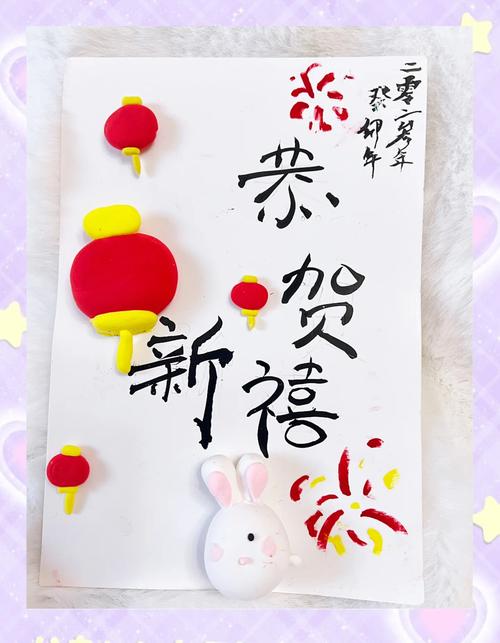 二零二叁年
癸卯年
恭贺新禧